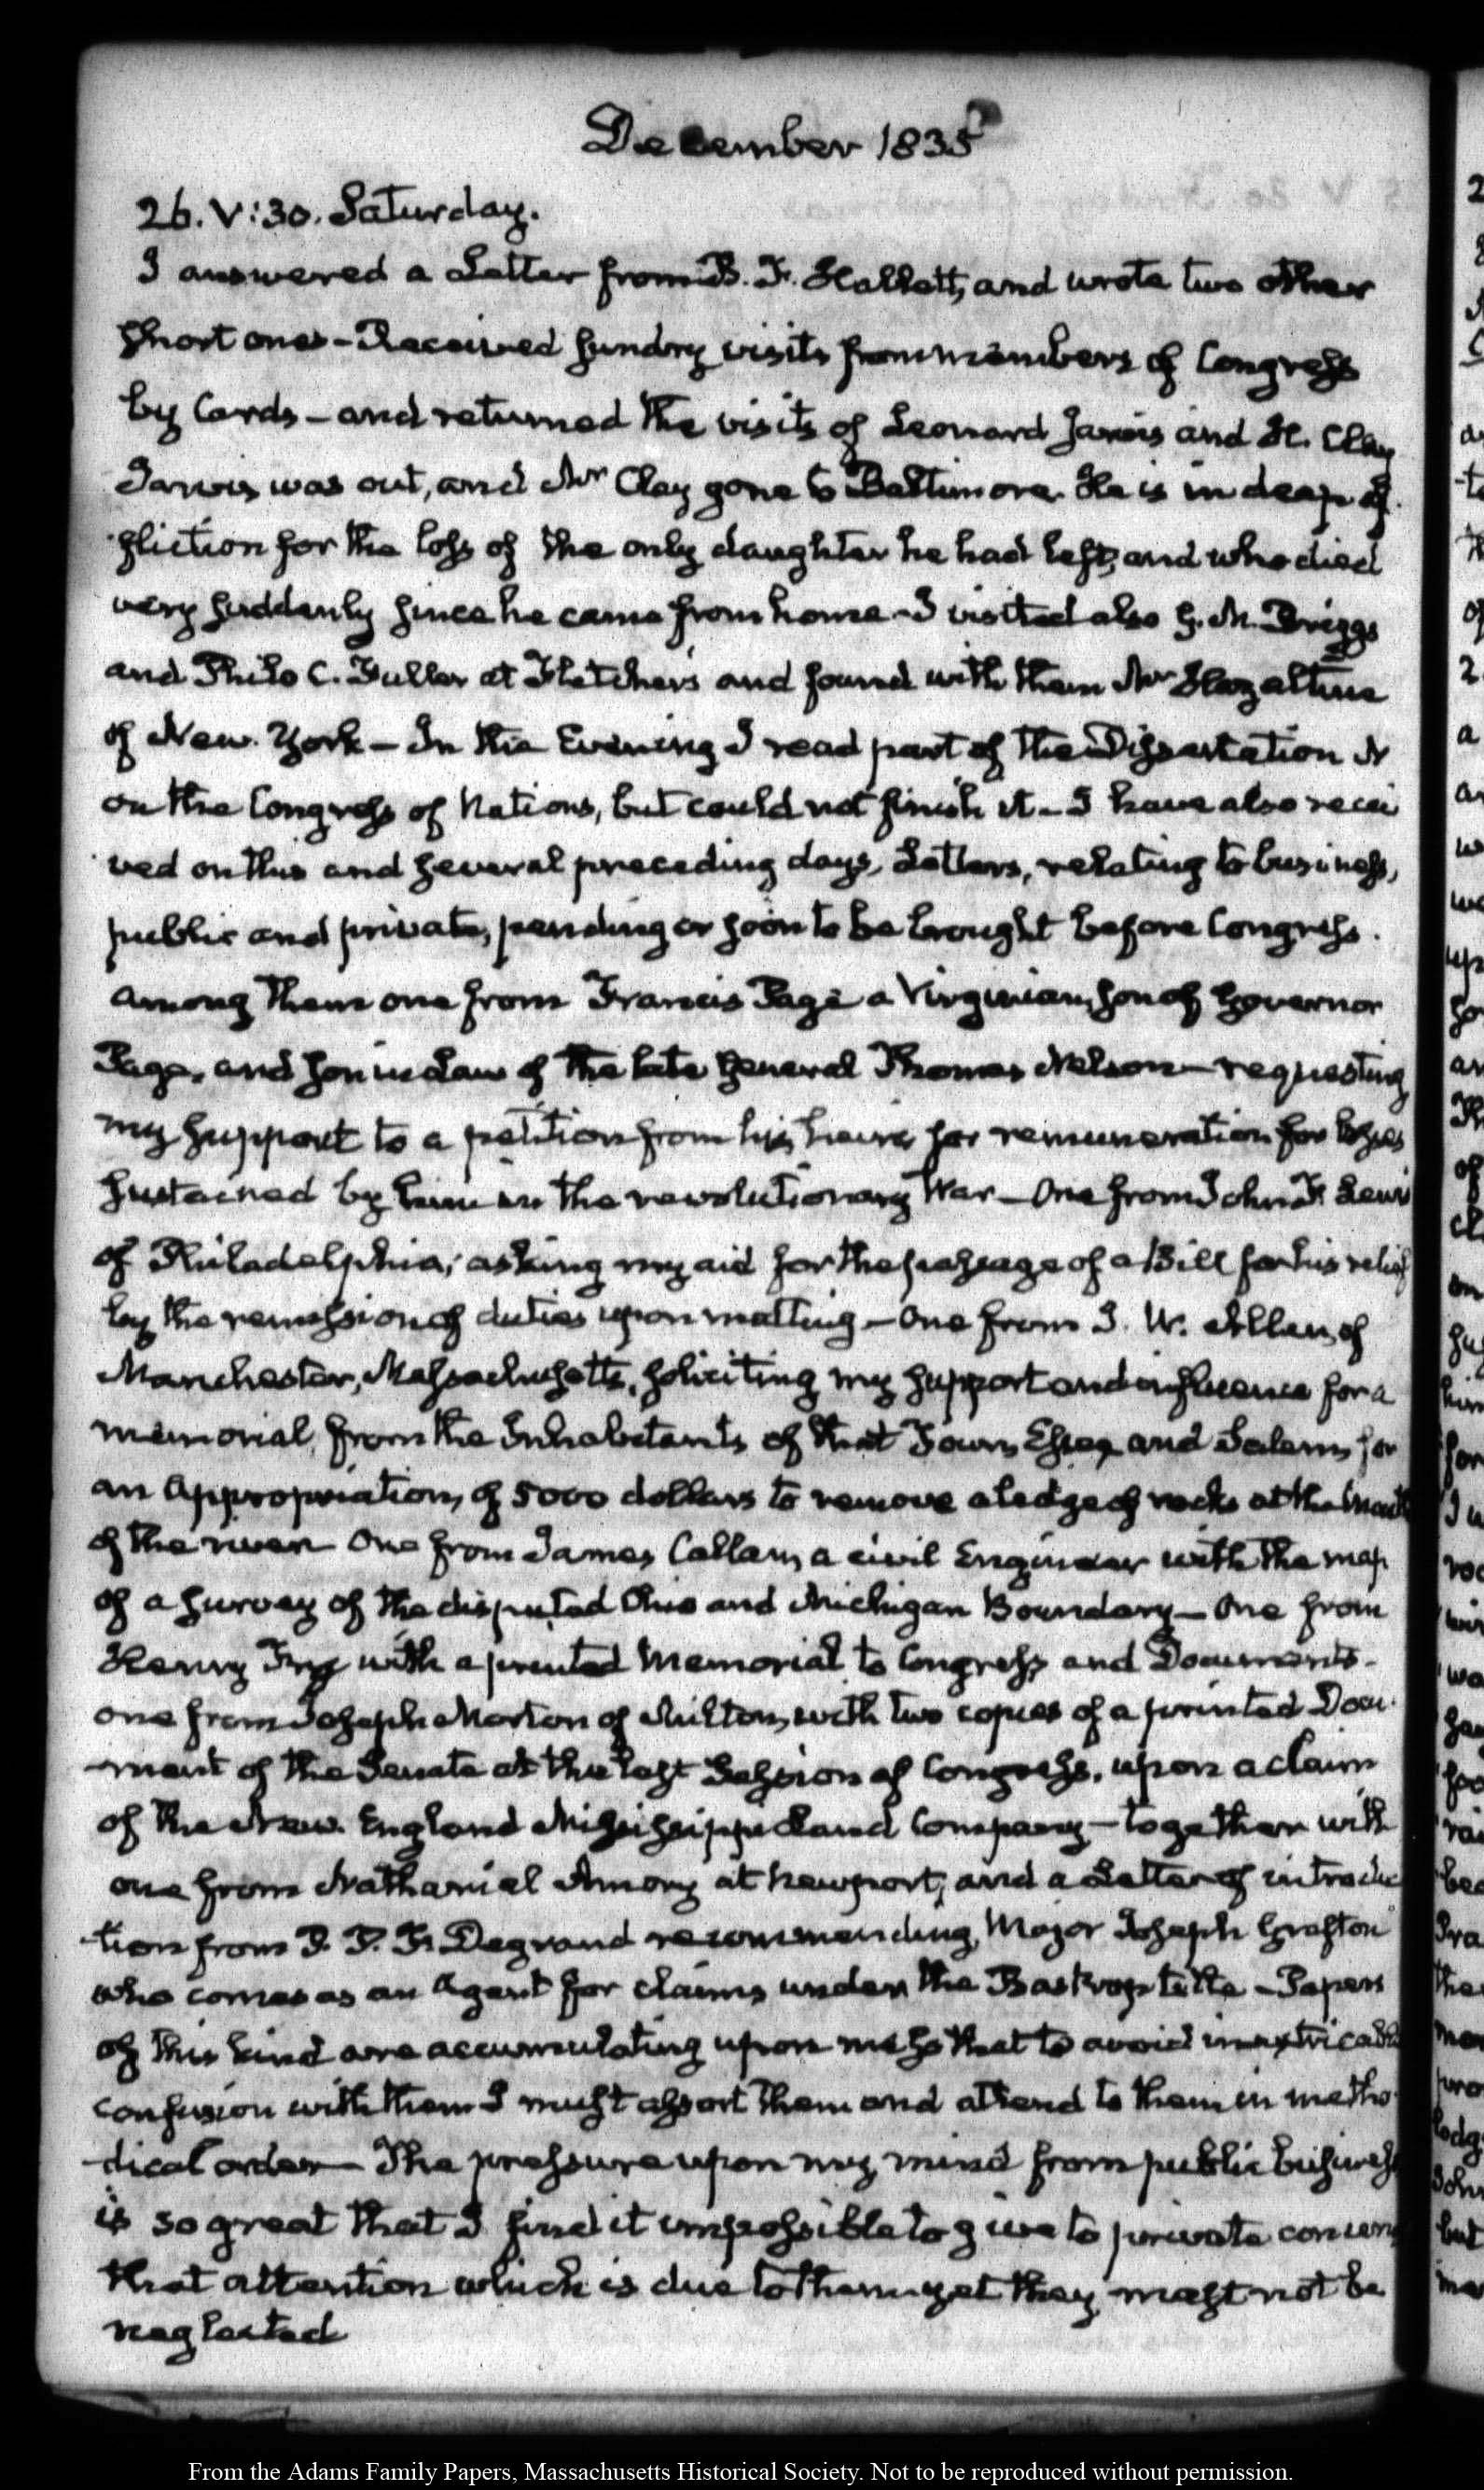 December 1835
26. V:30. Saturday.
I answered a Letter from B. F. Hallett, and wrote two other
short ones - Received sundry visits from members of Congress
by Cards - and returned the visits of Leonard Jarvis and H. Clay
Jarvis was out, and Mr Clay gone to Baltimore. He is in deep af-
fliction for the loss of the only daughter he had left, and who died
very suddenly since he came from home - I visited also G. N. Briggs
and Philo C. Fuller at Fletcher's and found with them Mr Hazeltine
of New York - In the Evening I read part of the Dissertation N
on the Congress of Nations, but could not finish it - I have also recei
ved on this and several preceding days, Letters, relating to business,
public and private, pending or soon to be brought before Congress.
among them one from Francis Page a Virginian, son of Governor
Page, and son in law of the late General Thomas Nelson - requesting
my support to a petition from his heirs for remuneration for losses
sustained by him in the revolutionary War - One from John F. Lewis
of Philadelphia, asking my aid for the passage of a Bill for his relief
by the remission of duties upon matting - One from J. W. Allen, of
Manchester, Massachusetts, soliciting my support and influence for a
memorial, from the Inhabitants of that Town, Essex and Salem, for
an appropriation, of 5000 dollars to remove a ledge of rocks at the mouth
of the river One from James Collam, a civil Engineer with the map
of a survey of the disputed Ohio and Michigan Boundary - One from
Henry Fry with a printed Memorial to Congress and Documents -
one from Joseph Morton of Milton, with two copies of a printed Docu-
-ment of the Senate at the last Session of Congress, upon a claim
of the New England Mississippi Land Company - together with
one from Nathaniel Amory at Newport, and a Letter of introduc
tion from P. P. F. Degrand recommending, Major Joseph Grafton
who comes as an Agent for claims under the Bastrop title - Papers
of this kind are accumulating upon me so that to avoid inextricable
confusion with them I must assort them and attend to them in metho-
-dical order - The pressure upon my mind from public business
is so great that I find it impossible to give to private concerns
that attention which is due to them yet they must not be
neglected
From the Adams Family Papers, Massachusetts Historical Society. Not to be reproduced without permission.